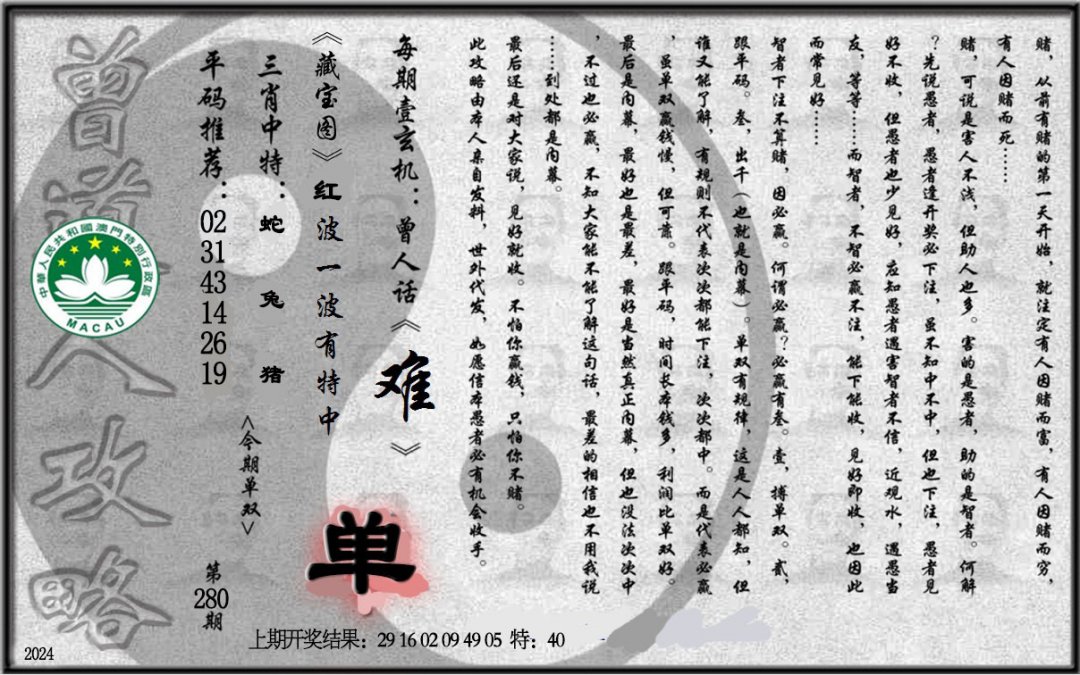 赌，从前有赌的第一天开始，就注定有人因赌而富，有人因赌而穷，
有人因赌而死……
赌，可说是害人不浅，但助人也多。害的是愚者，助的是智者。何解
？先说愚者，愚者逢开奖必下注，虽不知中不中，但也下注，愚者见
好不收，但愚者也少见好，应知愚者遇害智者不信，近观水，遇愚当
友，等等……而智者，不智必赢不注，能下能收，见好即收，也因此
而常见好……
智者下注不算赌，因必赢。何谓必赢？必赢有叁。壹，搏单双。贰，
跟平码。叁，出千（也就是内幕）。单双有规律，这是人人都知，但
谁又能了解，有规则不代表次次都能下注，次次都中。而是代表必赢
，虽单双赢钱慢，但可靠。跟平码，时间长本钱多，利润比单双好。
最后是内幕，最好也是最差，最好是当然真正内幕，但也没法次次中
，不过也必赢，不知大家能不能了解这句话，最差的相信也不用我说
……到处都是内幕。
最后还是对大家说，见好就收。不怕你赢钱，只怕你不赌。
此攻略由本人亲自发料，世外代发，如愿信本愚者必有机会收手。
每期壹玄机：曾人话《难》
《藏宝图》红波一波有特中
单
三肖中特：蛇 兔 猪
<今期单双>
平码推荐：02 31 43 14 26 19
第280期
曾道人攻略
中華人民共和國澳門特別行政區
MACAU
上期开奖结果：29 16 02 09 49 05 特：40
2024